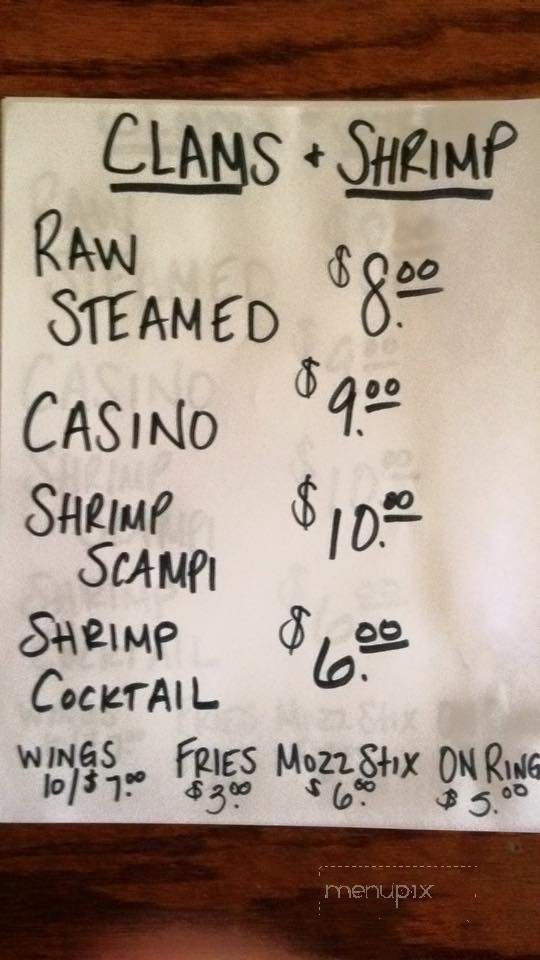 CLAMS + SHRIMP
RAW
STEAMED $8.00
CASINO $9.00
SHRIMP
SCAMPI $10.00
SHRIMP
COCKTAIL $6.00
WINGS FRIES MOZZ STIX ON RING
10/$7.00 $3.00 $6.00 $5.00
menupix